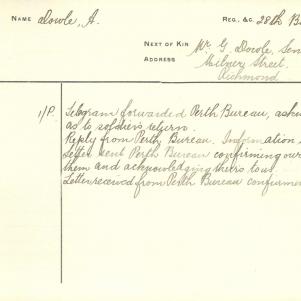 NAME Dowle, A. REG., &C. 28th B
NEXT OF KIN Mr G. Dowle, Sen
ADDRESS Milner Street,
Richmond
1/P. Telegram forwarded Perth Bureau, aske
as to soldier's return.
Reply from Perth Bureau. Information
Letter sent Perth Bureau confirming our
them and acknowledging theirs to us
Letter received from Perth Bureau confirme